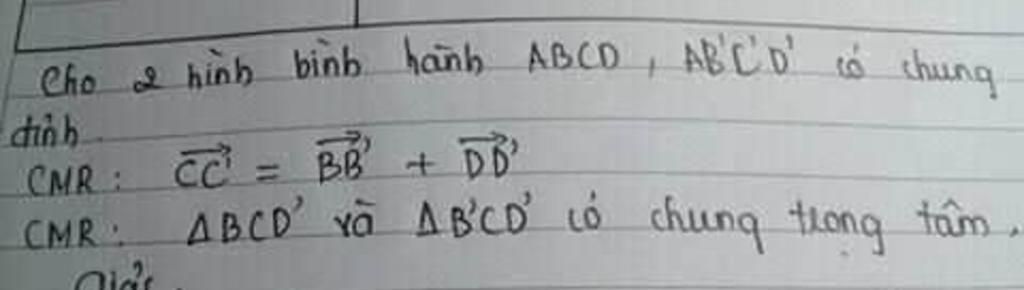 Cho 2 hình bình hành ABCD, AB'C'D' có chung
đỉnh
CMR: CC' = BB' + DD'
CMR: ΔBCD' và ΔB'CD' có chung trọng tâm.
Giải